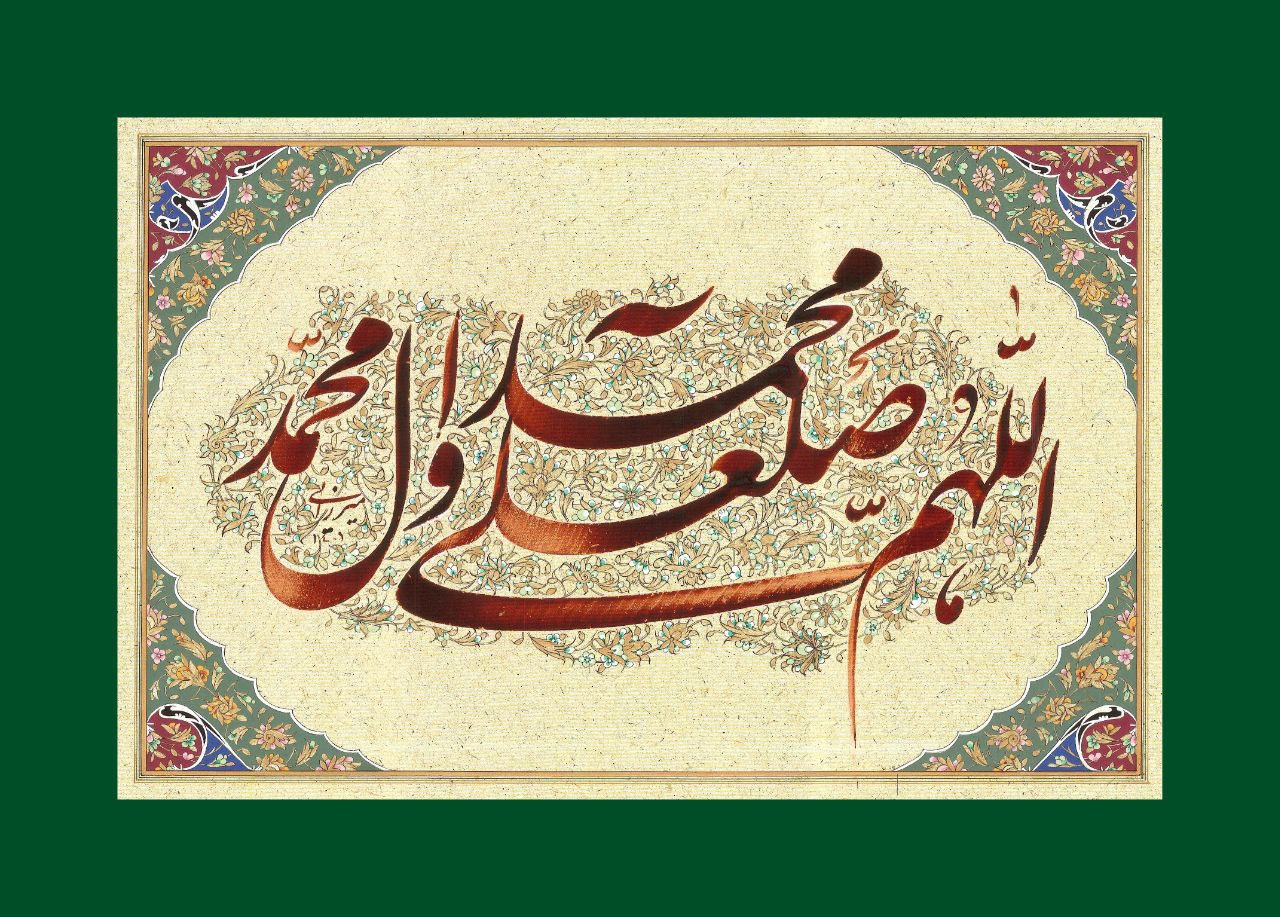 اللّٰهمّ صَلّ علی محمد و آل محمّد